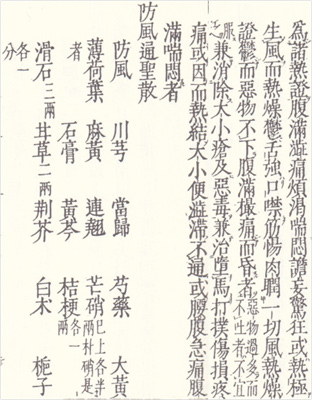 爲諸熱證腹滿澁痛煩渴喘悶譫妄驚狂或熱極
生風而熱燥鬱舌強口噤筋惕肉瞤一切風熱燥
證鬱而惡物不下腹滿撮痛而昏者惡物過多而不吐者不宜
服之兼消除大小瘡及惡毒兼治墮馬打撲傷損疼
痛或因而熱結大小便澁滯不通或腰腹急痛腹
滿喘悶者
防風通聖散
防風 川芎 當歸 芍藥 大黃
薄荷葉 麻黃 連翹 芒硝已上各半兩朴硝是
者 石膏 黃芩 桔梗各一兩
滑石三兩 甘草二兩 荊芥 白朮 梔子
各一分